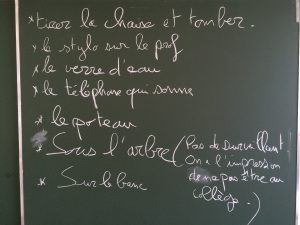 * tirer la chaise et tomber.
* le stylo sur le prof
* le verre d'eau
* le téléphone qui sonne
* le poteau
* Sous l'arbre (Pas de surveillant
On a l'impression
de ne pas être au
collège.)
* Sur le banc